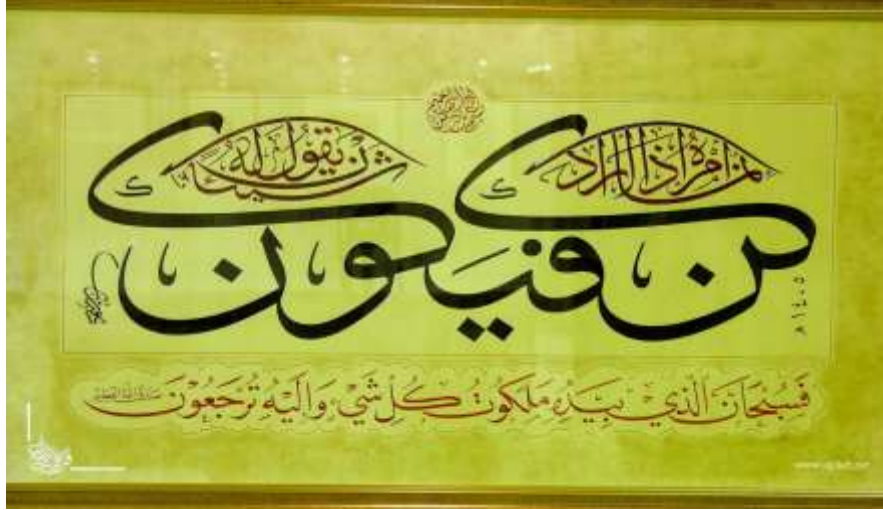 إنما أمره إذا أراد
شيئا أن يقول له
كن فيكون
١٤٠٥ هـ
فَسُبْحَانَ الَّذِي بِيَدِهِ مَلَكُوتُ كُلِّ شَيْءٍ وَإِلَيْهِ تُرْجَعُونَ